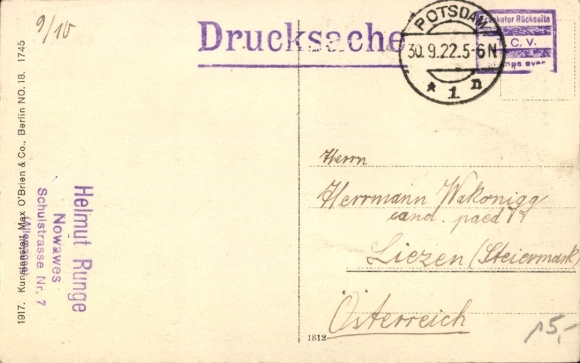 9/10
Drucksache
POTSDAM
30.9.22.5-6N
* 1 n
Rückseite
C. V.
1917. Kunstanstalt Max O'Brien & Co., Berlin NO. 18. 1745
Helmut Runge
Nowawes
Schulstrasse Nr. 7
Herrn
Herrmann Wakonigg
cand. paed
Liezen (Steiermark)
Österreich
1812
15,-